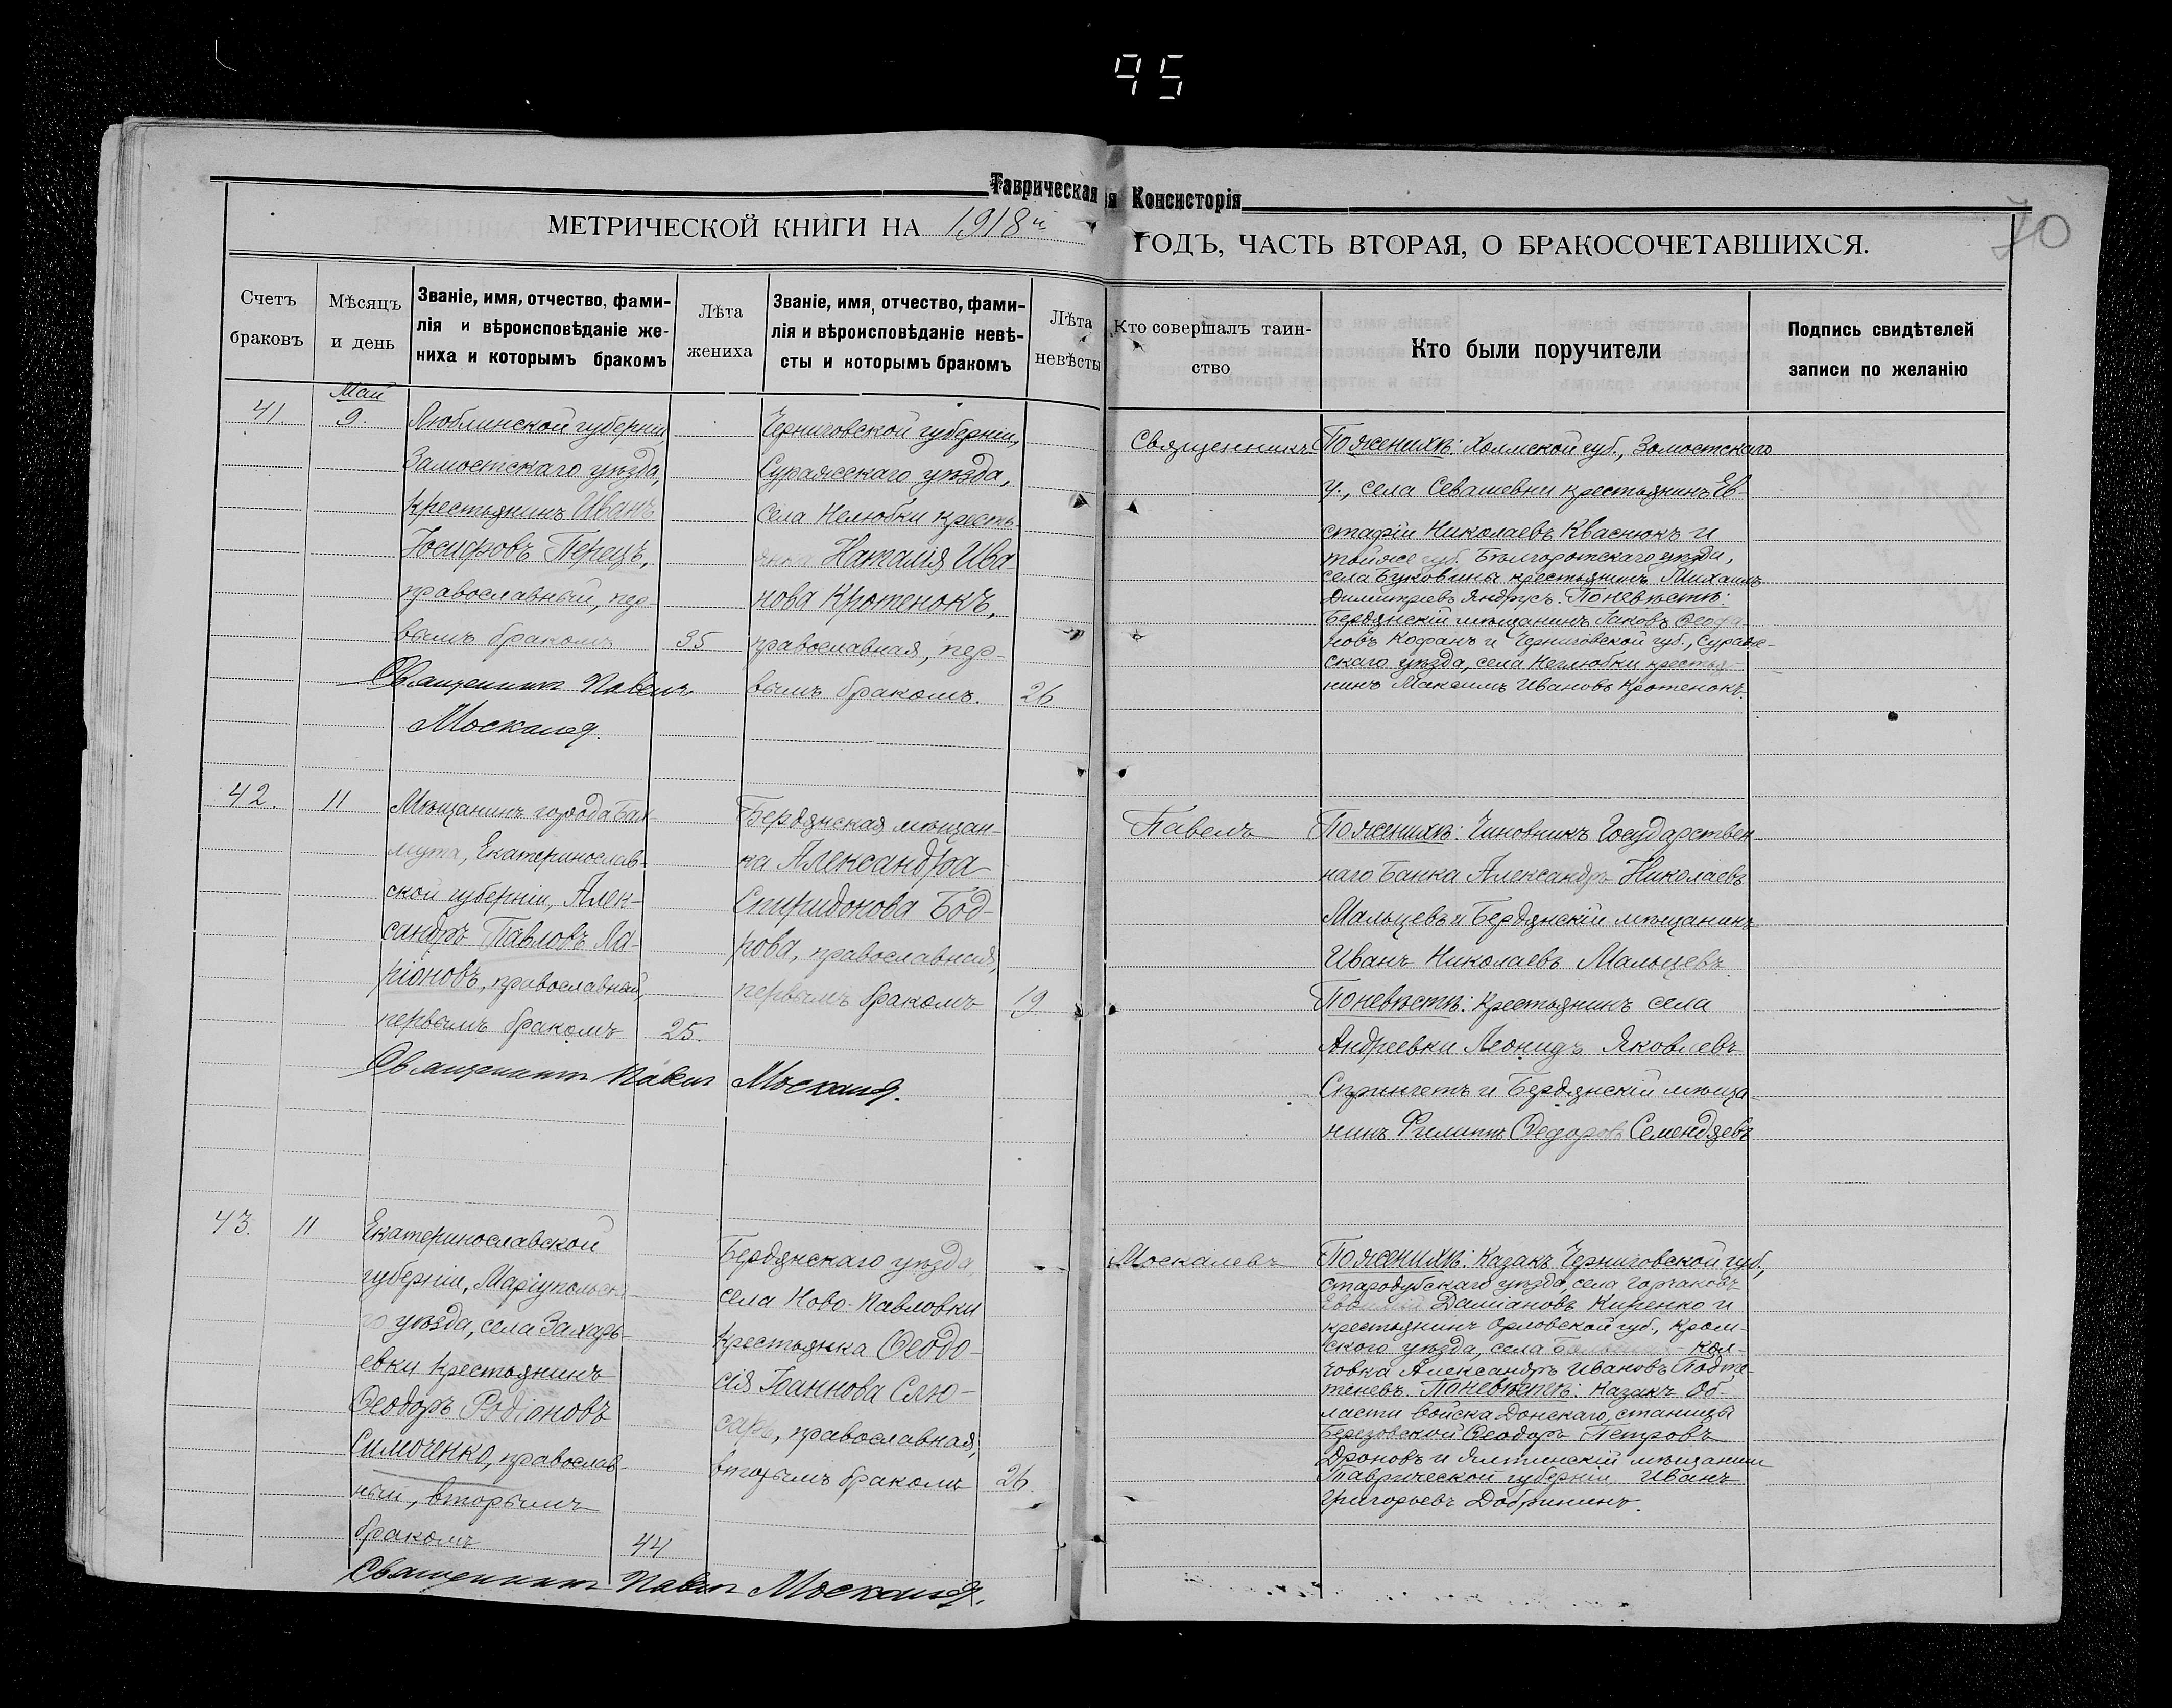 95
Таврическая я Консисторія
70
МЕТРИЧЕСКОЙ КНИГИ НА 1918й ГОДЪ, ЧАСТЬ ВТОРАЯ, О БРАКОСОЧЕТАВШИХСЯ.
Счетъ
браковъ
Мѣсяцъ
и день
Званіе, имя, отчество, фами-
лія и вѣроисповѣданіе же-
ниха и которымъ бракомъ
Лѣта
жениха
Званіе, имя, отчество, фами-
лія и вѣроисповѣданіе невѣ-
сты и которымъ бракомъ
Лѣта
невѣсты
Кто совершалъ таин-
ство
Кто были поручители
Подпись свидѣтелей
записи по желанію
41.
Май
9.
Люблинской губерніи,
Замостскаго уѣзда,
крестьянинъ Иванъ
Іосифовъ Перецъ,
православный, пер-
вымъ бракомъ
35
Черниговской губерніи,
Суражскаго уѣзда,
села Нелюбки кресть-
янка Наталія Ива-
нова Кротенокъ,
православная, пер-
вымъ бракомъ.
26
Священникъ Павелъ
Москалев.
Священникъ
По женихѣ: Холмской губ., Замостскаго
у., села Севашевки крестьянинъ Ев-
стафій Николаевъ Квасиюкъ и
той же губ. Бѣлгоротскаго уѣзда,
села Буковины крестьянинъ Михаилъ
Димитріевъ Яндрусъ. По невѣстѣ:
Бердянскій мѣщанинъ Іаковъ Ѳеофа-
новъ Кофанъ и Черниговской губ., Сураж-
скаго уѣзда, села Нелюбки крестья-
нинъ Максимъ Ивановъ Кротенокъ.
42.
11
Мѣщанинъ города Бах-
мута, Екатеринослав-
ской губерніи, Алек-
сандръ Павловъ Ла-
ріоновъ, православный,
первымъ бракомъ
25.
Бердянская мѣщан-
ка Александра
Спиридонова Бод-
рова, православная,
первымъ бракомъ
19
Священникъ Павелъ Москалев.
Павелъ
По женихѣ: Чиновникъ Государствен-
наго Банка Александръ Николаевъ
Мальцевъ и Бердянскій мѣщанинъ
Иванъ Николаевъ Мальцевъ.
По невѣстѣ: крестьянинъ села
Андреевки Леонидъ Яковлевъ
Скрынгетъ и Бердянскій мѣща-
нинъ Филиппъ Ѳедоровъ Семендяевъ
43.
11
Екатеринославской
губерніи, Маріупольска-
го уѣзда, села Захарь-
евки крестьянинъ
Ѳеодоръ Родіоновъ
Симоченко, православ-
ный, вторымъ
бракомъ
44
Бердянскаго уѣзда
села Ново-Павловки
крестьянка Ѳеодо-
сія Іоаннова Слю-
сарь, православная,
вторымъ бракомъ
26.
Священникъ Павелъ Москалев.
Москалевъ
По женихѣ: Казакъ Черниговской губ,
Стародубскаго уѣзда, села Горчаковъ
Даміановъ Киренко и
крестьянинъ Орловской губ., Кром-
скаго уѣзда, села Кол-
човка Александръ Ивановъ Подта-
теневъ. По невѣстѣ: Казакъ Об-
ласти войска Донскаго, станицы
Березовской Ѳеодоръ Петровъ
Дроновъ и Ялтинскій мѣщанинъ
Таврической губерніи Иванъ
Григорьевъ Добринин.